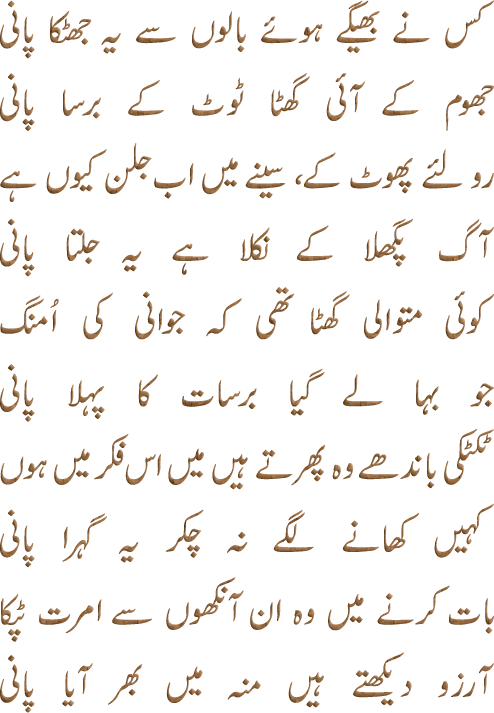 کس نے بھیگے ہوئے بالوں سے یہ جھٹکا پانی
جھوم کے آئی گھٹا ٹوٹ کے برسا پانی
رو لئے پھوٹ کے، سینے میں اب جلن کیوں ہے
آگ پگھلا کے نکلا ہے یہ جلتا پانی
کوئی متوالی گھٹا تھی کہ جوانی کی اُمنگ
جو بہا لے گیا برسات کا پہلا پانی
ٹکٹکی باندھے وہ پھرتے ہیں میں اس فکر میں ہوں
کہیں کھانے لگے نہ چکر یہ گہرا پانی
بات کرنے میں وہ ان آنکھوں سے امرت ٹپکا
آرزو دیکھتے ہیں منہ میں بھر آیا پانی